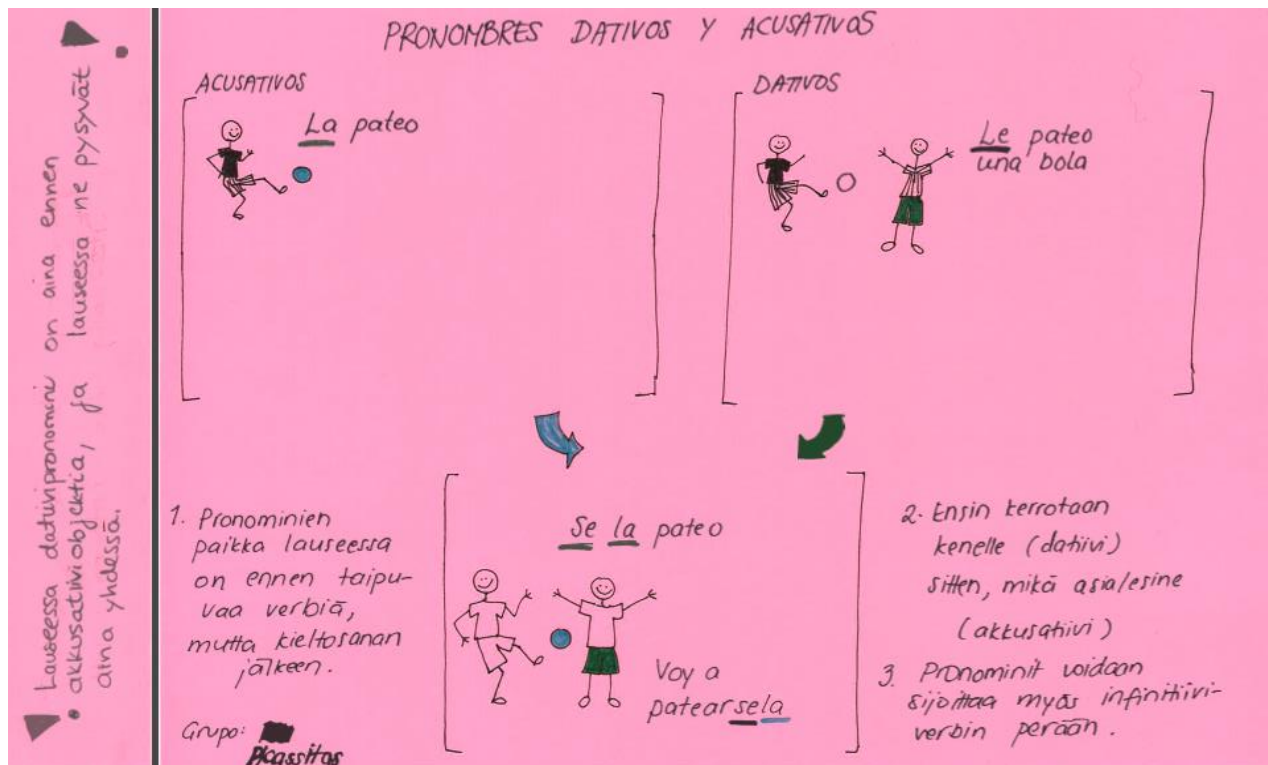 Lauseessa datiivipronomini on aina ennen
akkusatiiviobjektia, ja lauseessa ne pysyvät
aina yhdessä.
PRONOMBRES DATIVOS Y ACUSATIVOS
ACUSATIVOS
La pateo
DATIVOS
Le pateo
una bola
1. Pronominien
paikka lauseessa
on ennen taipu-
vaa verbiä,
mutta kieltosanan
jälkeen.
Grupo:
Picassitos
Se la pateo
Voy a
patearsela
2. Ensin kerrotaan
kenelle (datiivi)
sitten, mikä asia/esine
(akkusatiivi)
3. Pronominit voidaan
sijoittaa myös infinitiivi-
verbin perään.